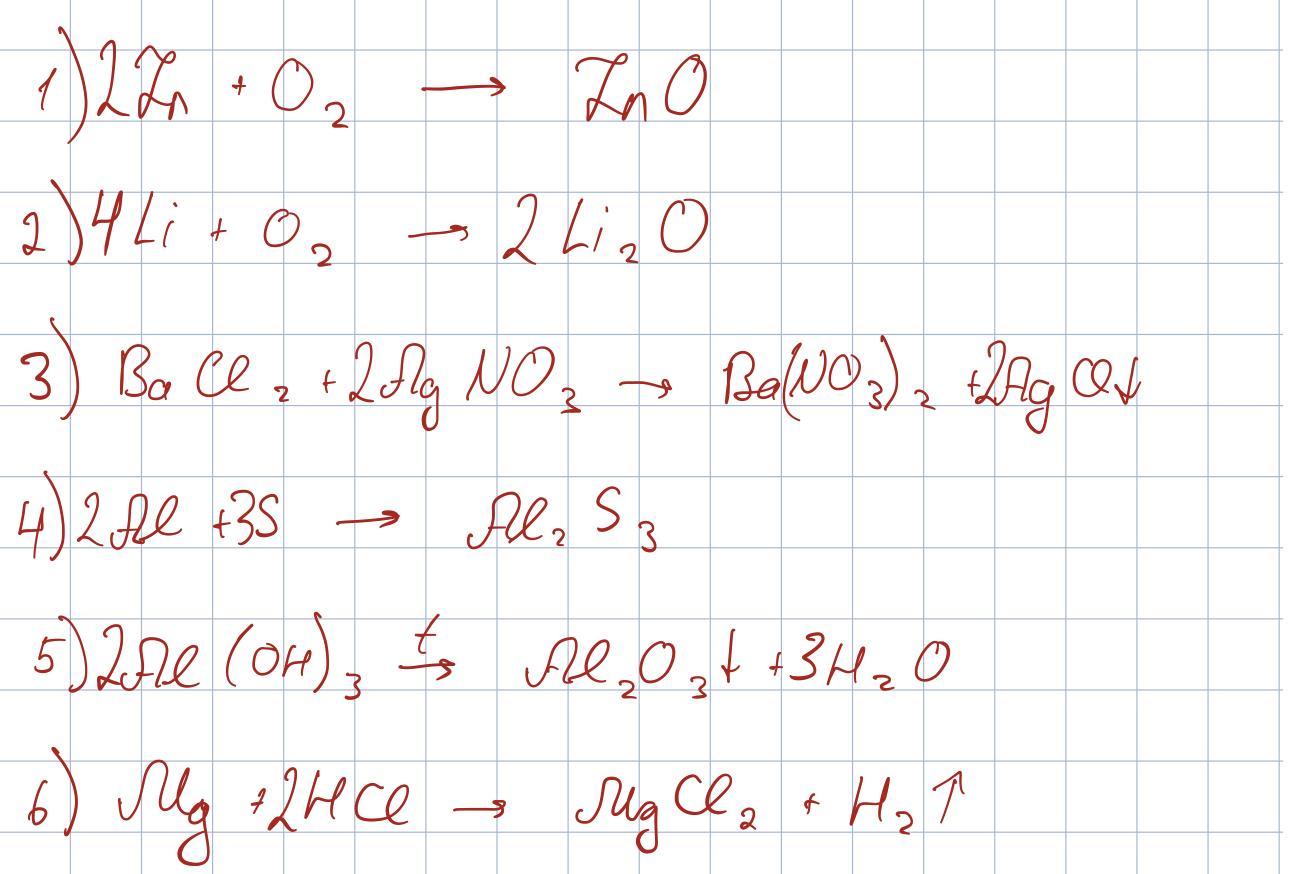 1) 2Zn + O₂ → ZnO
2) 4Li + O₂ → 2Li₂O
3) BaCl₂ + 2AgNO₃ → Ba(NO₃)₂ + 2AgCl↓
4) 2Al + 3S → Al₂S₃
5) 2Al(OH)₃ →ᵗ Al₂O₃↓ + 3H₂O
6) Mg + 2HCl → MgCl₂ + H₂↑